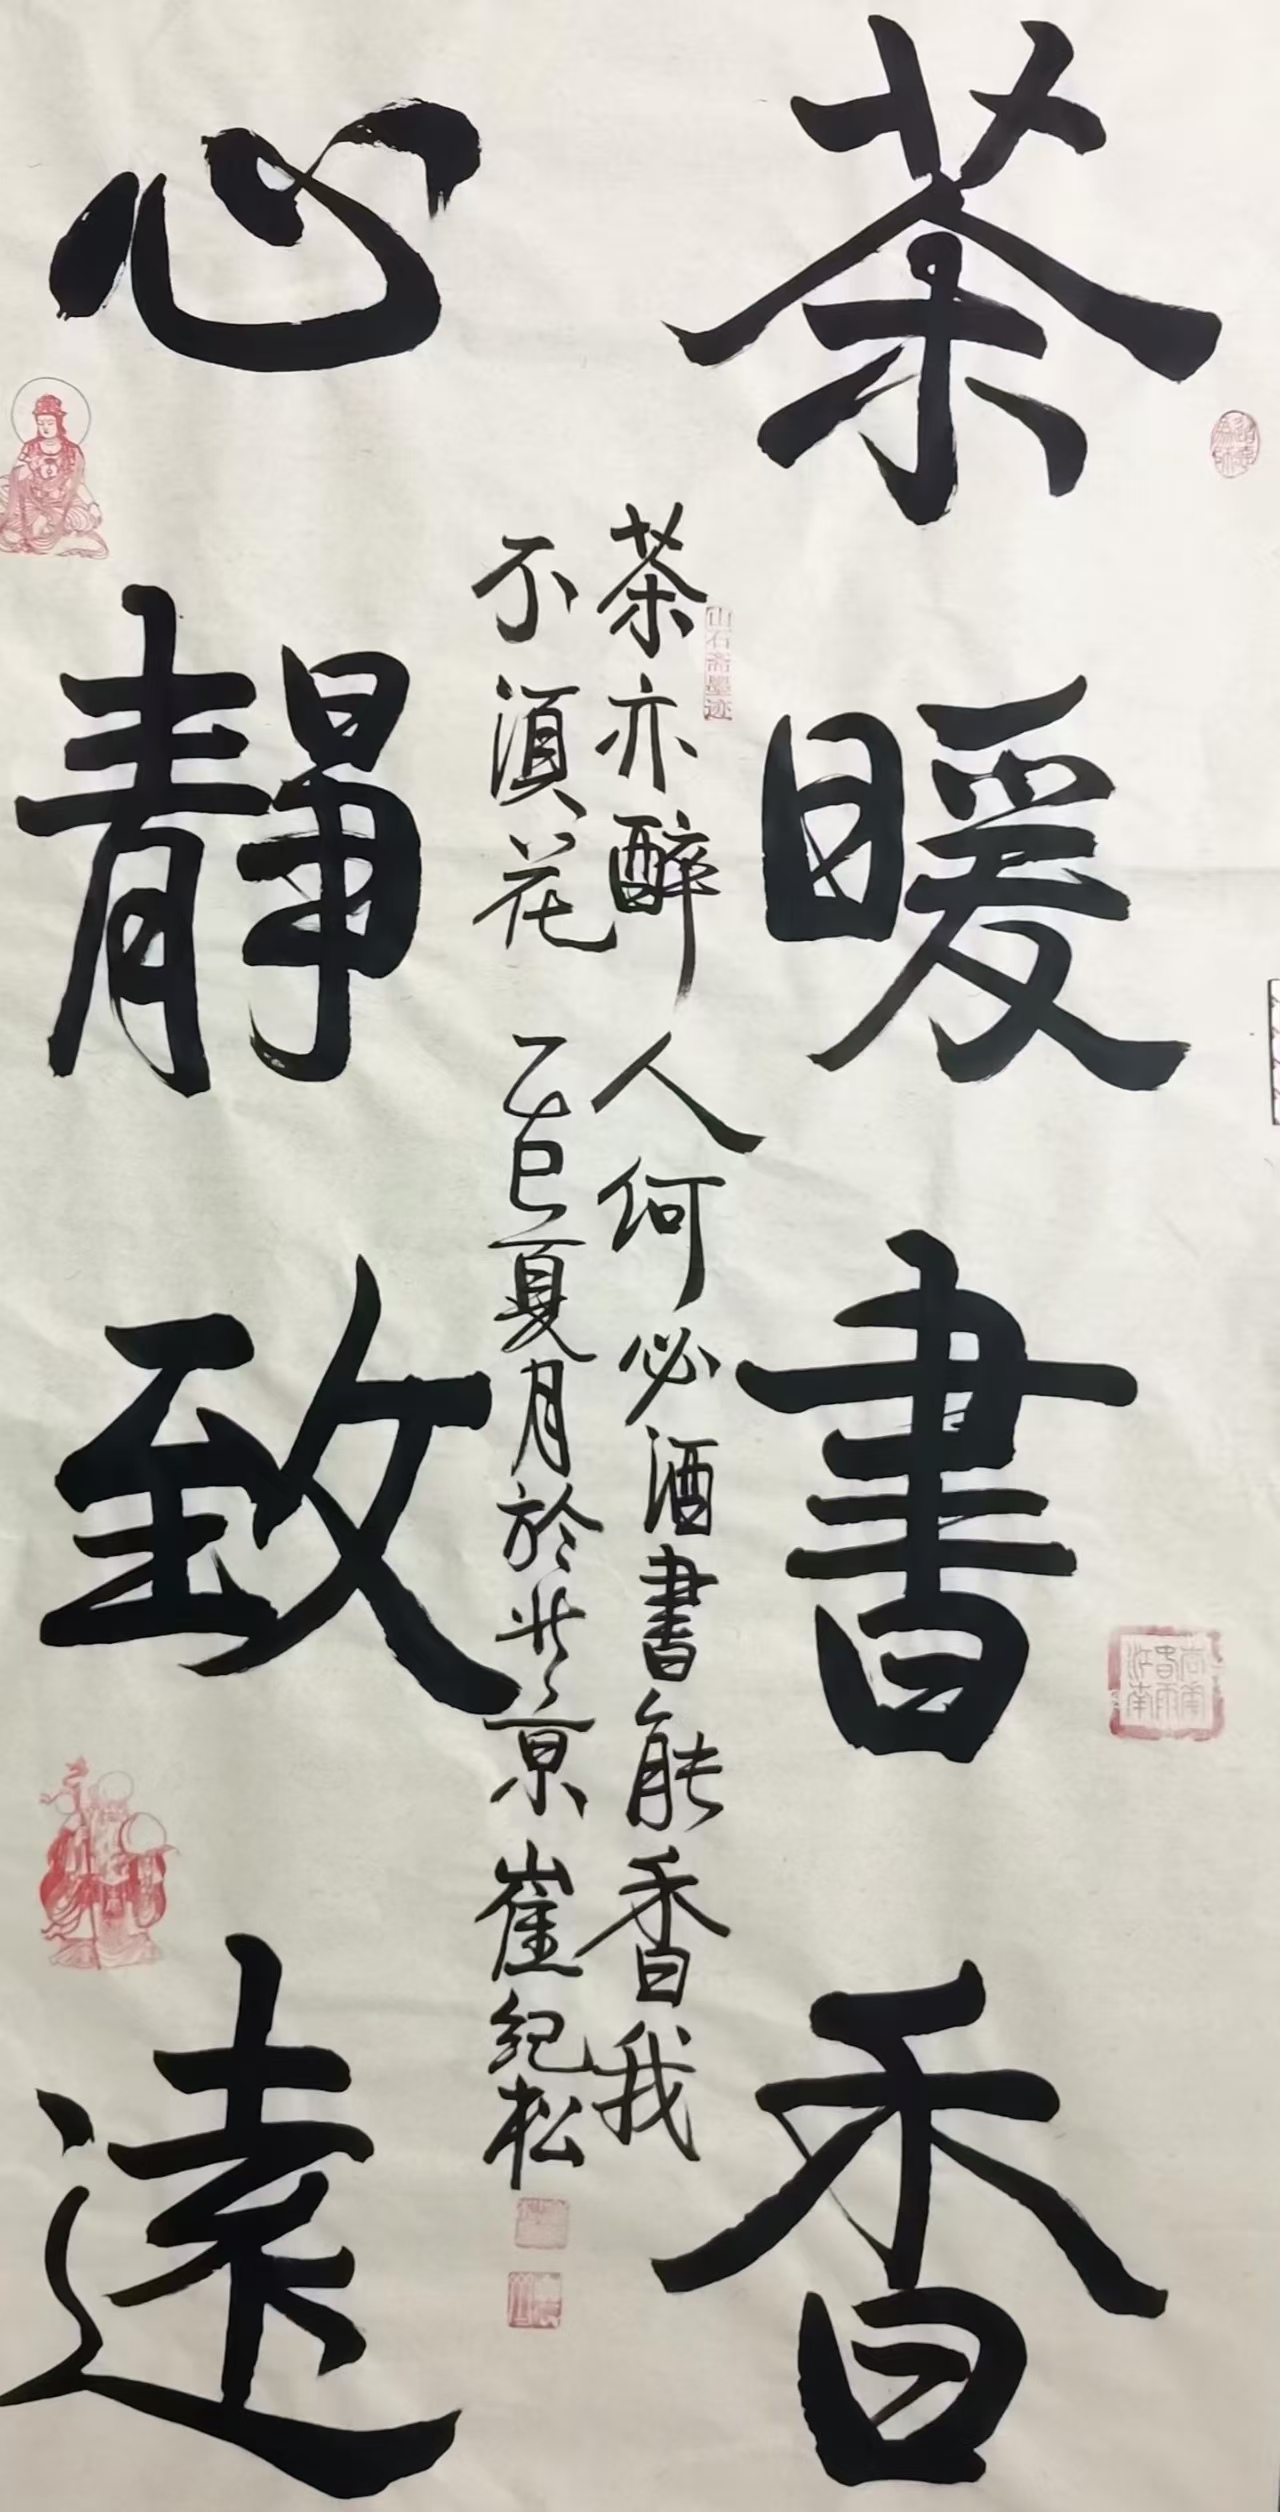 茶暖書香
茶亦醉人何必酒書能香我
不須花 乙巳夏月於北京崔紀松
心靜致遠
山石斋墨迹